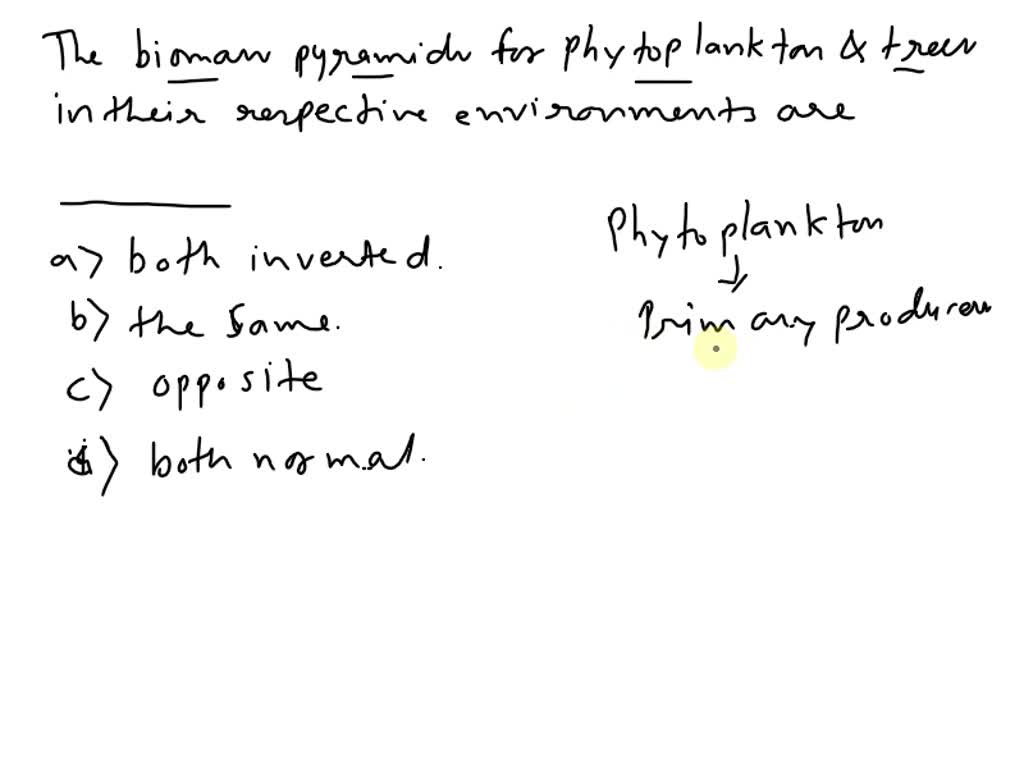 The biomass pyramids for phytoplankton & trees
in their respective environments are
a) both inverted.
b) the same.
c) opposite
d) both normal.
Phytoplankton
↓
Primary producers